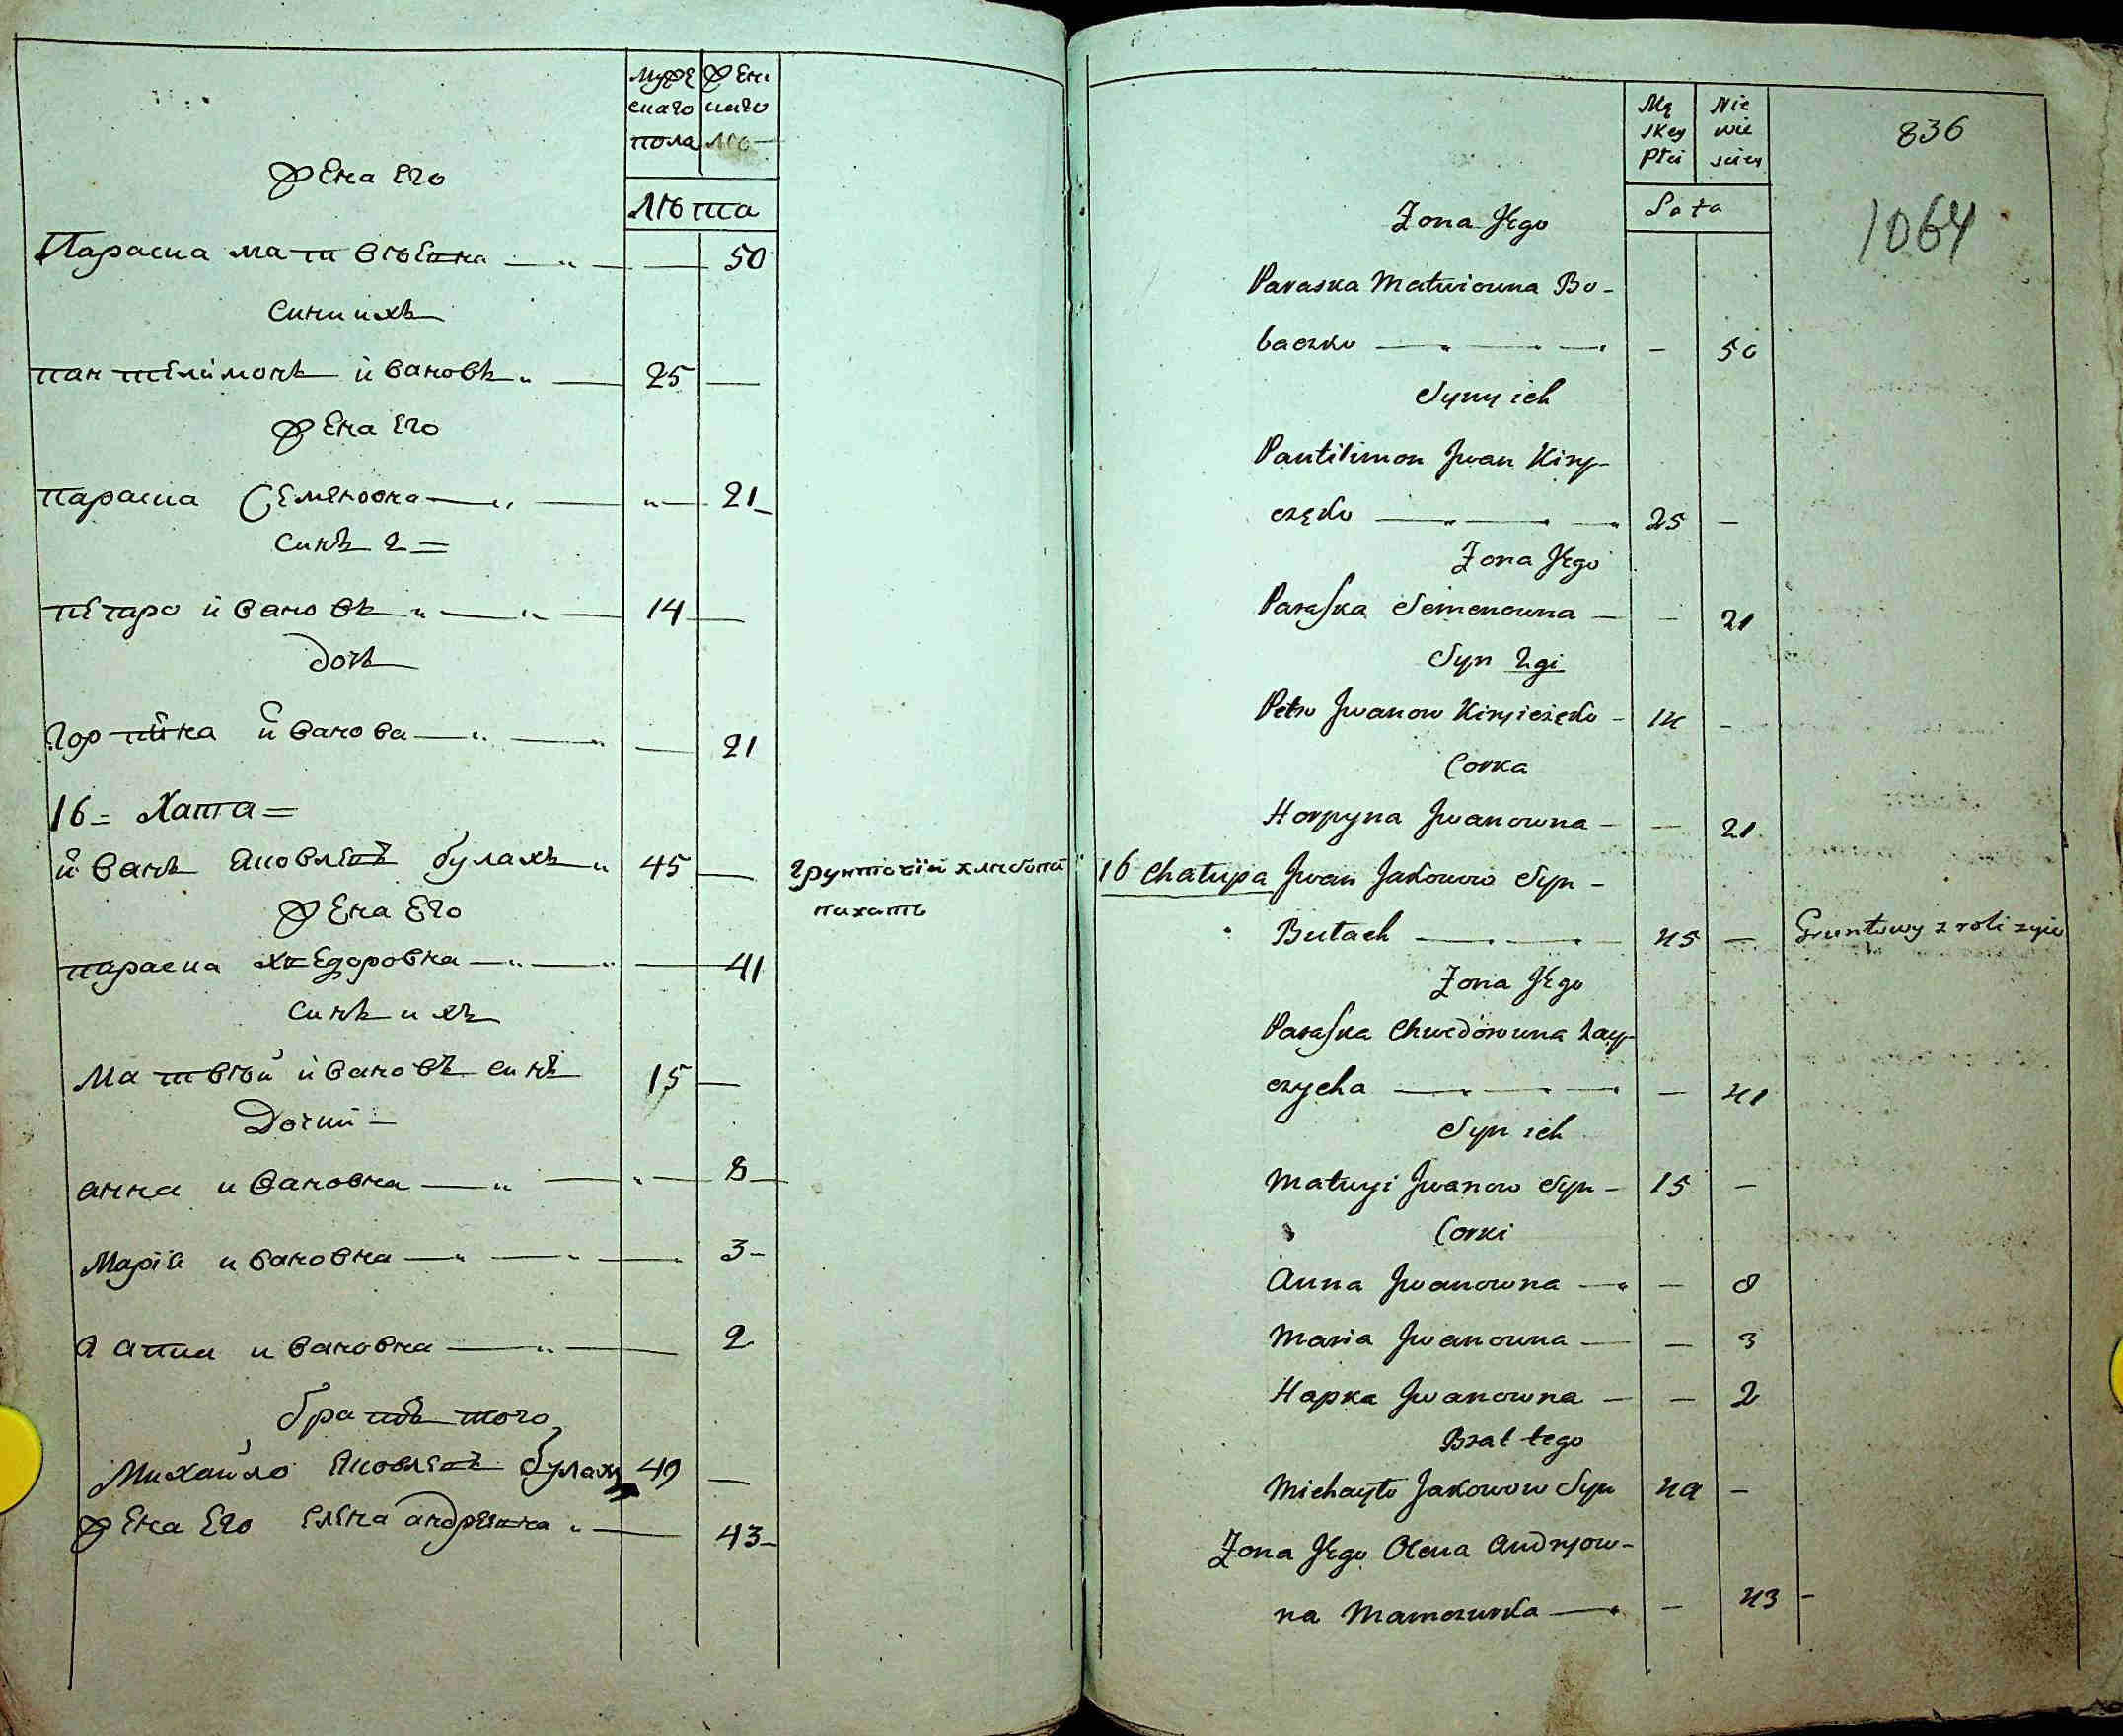 муже жен
скаго скаго
пола
лѣта
жена Его
Параска матвѣевна 50
Сини ихъ
пантелимонъ ивановъ 25
жена Его
параска Семеновна 21
Синъ 2
петро ивановъ 14
дочъ
горпина иванова 21
16 = Хата =
иванъ яковлевъ булахъ 45 грунтовій хлибопа
жена Его пихать
параска хведоровна 41
Синъ ихъ
Матвѣй ивановъ синъ 15
Дочки
анна ивановна 8
Марія ивановна 3
гапка ивановна 2
братъ того
Михайло яковлевъ булахъ 49
жена Его елена андреевна 43
Mę Nie
skey wie
Płci sciey
836
Lata
1064
Żona Jego
Paraska Matwiowna Bo-
baczko - 50
Syny ich
Pantilimon Jwan Kiry-
czędo 25 -
Żona Jego
Paraska Semenowna - - 21
Syn 2gi
Petro Jwanow Kiryiczędo - 14 -
Corka
Horpyna Jwanowna - - 21
16 Chałupa Jwan Jakowow Syn -
Bułach 45 - Gruntowy z roli zyie
Żona Jego
Paraska Chwedorowna Zay-
czycha - 41
Syn ich
Matwyi Jwanow Syn - 15 -
Corki
Anna Jwanowna - 8
Maria Jwanowna - 3
Hapka Jwanowna - - 2
Brat tego
Michayło Jakowow Syn 49 -
Żona Jego Olena Andryow-
na Mamczurka - 43 -